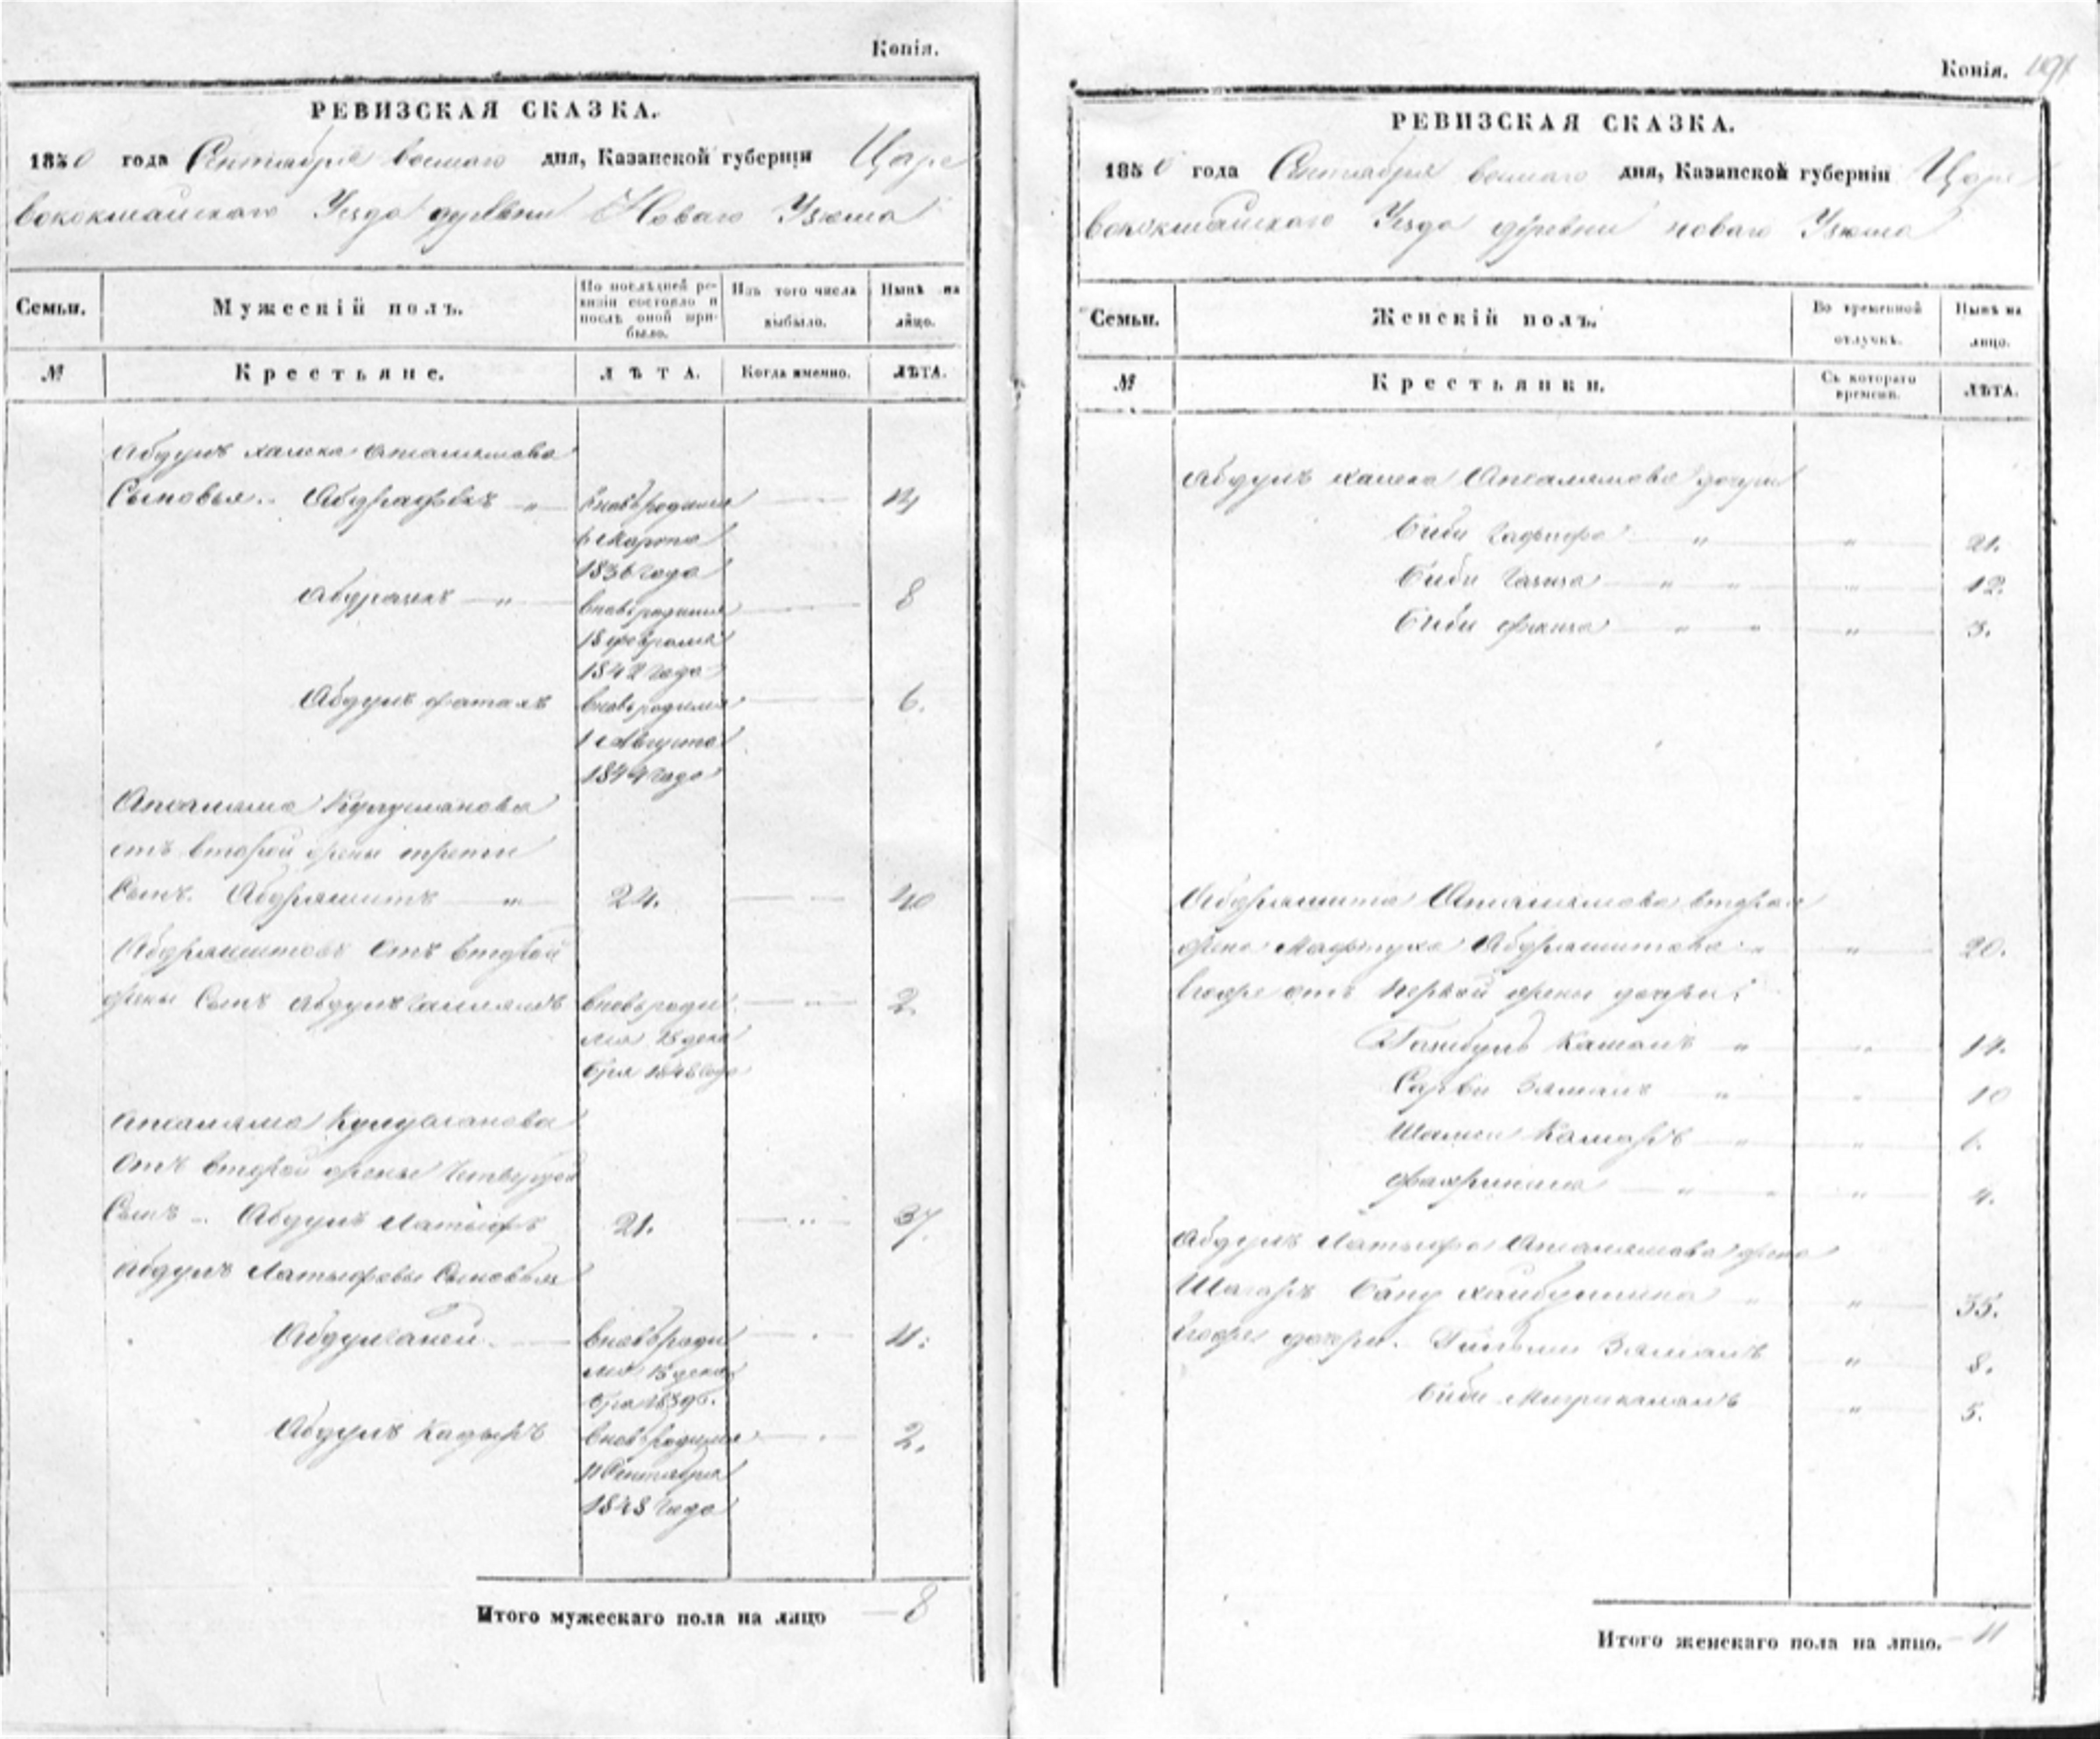 Копія.
РЕВИЗСКАЯ СКАЗКА.
1850 года Сентября восмаго дня, Казанской губерніи Царе
вококшайскаго Уезда деревни Новаго Узюма
Семьи.
Мужескій полъ.
По послѣдней ре-
визіи состояло и
послѣ оной при-
было.
Изъ того числа
выбыло.
Нынѣ на
лицо.
№
Крестьяне.
ЛѢТА.
Когда именно.
ЛѢТА.
Абдулъ халека Апкалямова
Сыновья. Абдрафикъ вновь родился 14
6 Марта
1836 года
вновь родился 8
18 февраля
1842 года
Абдулъ фатахъ вновь родился 6.
1 Августа
1844 года
Апкаляма
отъ второй жены третий
Сынъ. Абдряшитъ 24. 40
Абдряшитовъ отъ второй
жены Сынъ вновь роди 2
лся 28 дека
бря 1848 года
Апкаляма
отъ второй жены четвертой
Сынъ Абдулъ Латыфъ 21. 37
Абдулъ Латыфовы Сыновья
Абдулганей вновь роди 11.
лся 15 дека
бря 1839.
Абдулъ Кадыръ вновь родился 2.
11 Сентября
1848 года
Итого мужескаго пола на лицо 8
Копія. 191
РЕВИЗСКАЯ СКАЗКА.
1850 года Сентября восмаго дня, Казанской губерніи Царе
вококшайскаго Уезда деревни новаго Узюма
Семьи.
Женскій полъ.
Во временной
отлучкѣ.
Нынѣ на
лицо.
№
Крестьянки.
Съ котораго
времени.
ЛѢТА.
Абдулъ халека Апкалямова дочери
Биби 21.
Биби Газиза 12.
Биби 3.
Абдряшита Апкалямова вторая
жена Мафтуха Абдряшитова 20.
Егоже отъ первой жены дочери:
Камалъ 14.
Сарви Замалъ 10
Шамси Камаръ 6.
4.
Абдулъ Латыфа Апкалямова жена
Шагаръ Бану Хайбуллина 35.
Егоже дочери. Замалъ 8.
Биби 5.
Итого женскаго пола на лицо. 11